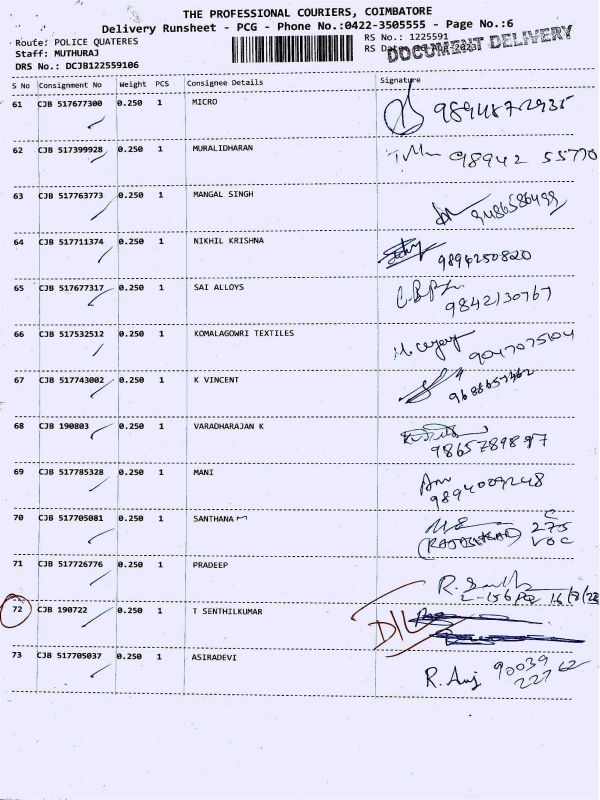 THE PROFESSIONAL COURIERS, COIMBATORE
Delivery Runsheet - PCG - Phone No.:0422-3505555 - Page No.:6
Route: POLICE QUATERES
RS No.: 1225591
Staff: MUTHURAJ
RS
DOCUMENT DELIVERY
DRS No.: DCJB122559106
S No Consignment No Weight PCS Consignee Details Signature
61 CJB 517677300 0.250 1 MICRO
62 CJB 517399928 0.250 1 MURALIDHARAN 98942 55770
63 CJB 517763773 0.250 1 MANGAL SINGH 9486586499
64 CJB 517711374 0.250 1 NIKHIL KRISHNA 9894250820
65 CJB 517677317 0.250 1 SAI ALLOYS 9842130767
66 CJB 517532512 0.250 1 KOMALAGOWRI TEXTILES 9047075104
67 CJB 517743002 0.250 1 K VINCENT
68 CJB 190803 0.250 1 VARADHARAJAN K 9865789897
69 CJB 517785328 0.250 1 MANI 9894009248
70 CJB 517705081 0.250 1 SANTHANA
71 CJB 517726776 0.250 1 PRADEEP
72 CJB 190722 0.250 1 T SENTHILKUMAR
73 CJB 517705037 0.250 1 ASIRADEVI 90039
22762